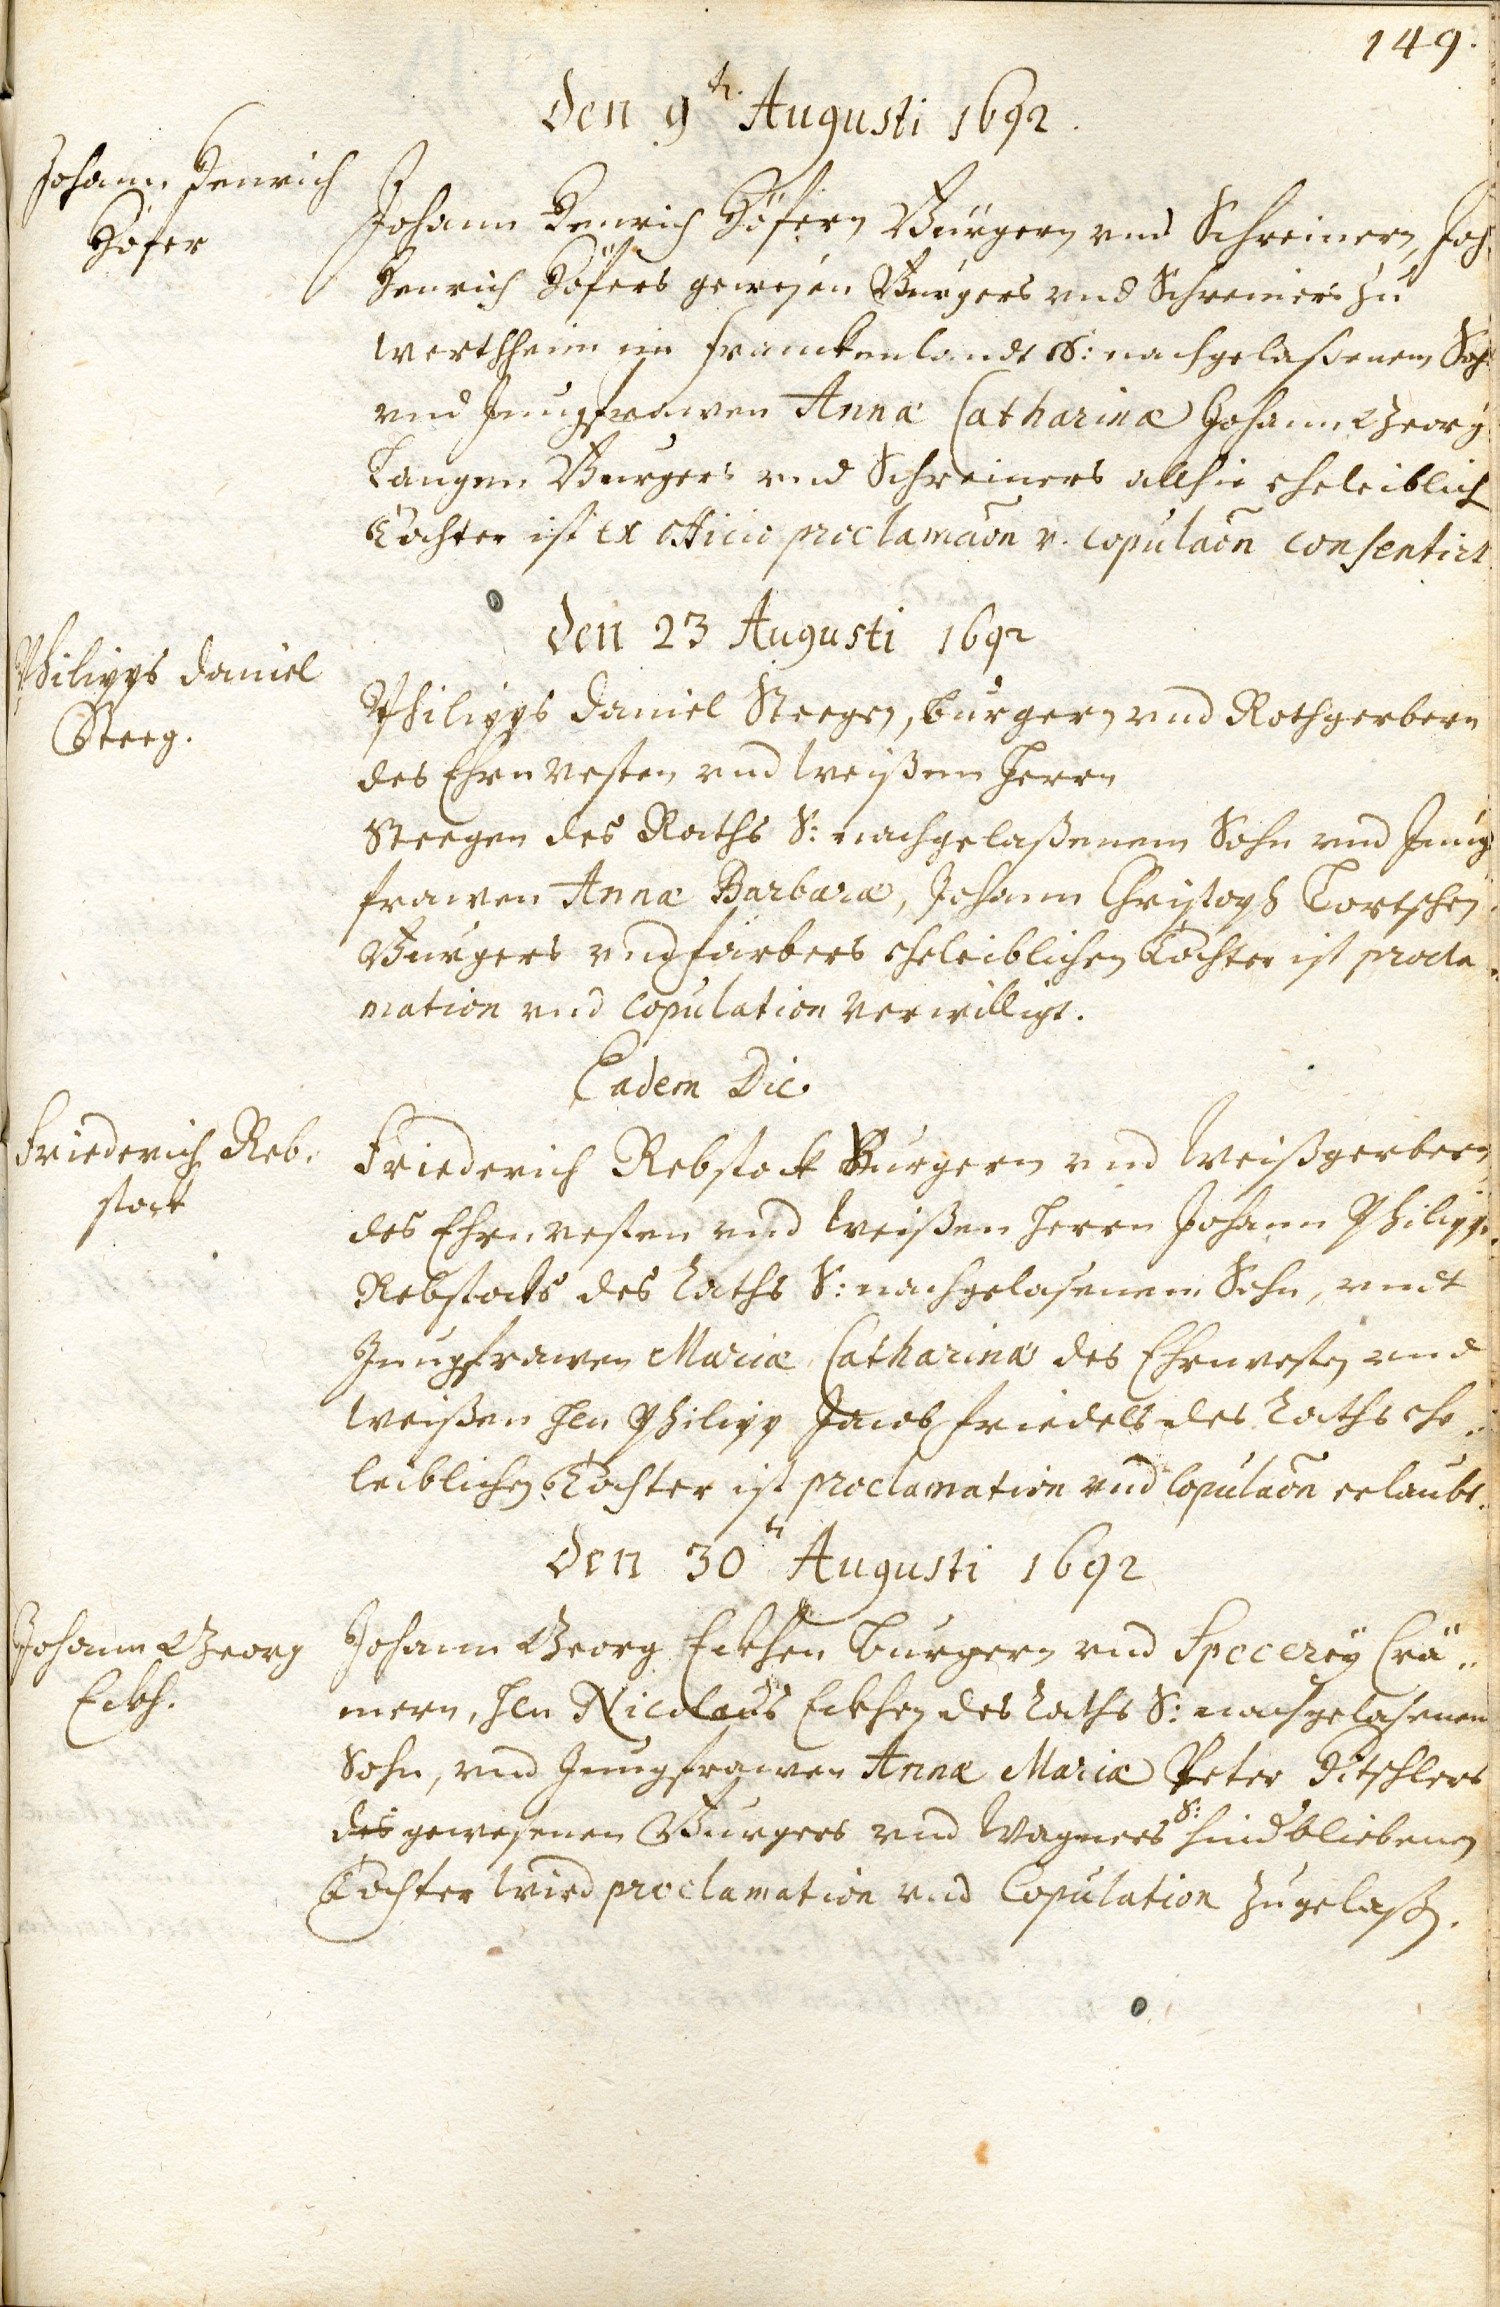 149.
den 9tn. Augusti 1692.
Johann Henrich
Höfer
Johann Henrich Höfern Bürgern vnd Schreinern, Joh.
Henrich Höfers gewesen Bürgers vnd Schreiners zu
Werthheim im Franckenlandt S: nachgelaßenem Soh
vnd Jungfrawen Annæ Catharinæ Johann Georg
Langen Burgers vnd Schreiners allhie eheleiblich
Tochter ist ex officio proclamaõn v. copulaõn consentirt
den 23 Augusti 1692
Philipps Daniel
Steeg.
Philipps Daniel Steegen, burgern vnd Rothgerbern
des Ehrnvesten vnd Weißen Herrn
Steegen des Raths S: nachgelaßenem Sohn vnd Jung
frawen Annæ Barbaræ, Johann Christoph
Burgers vnd farbers eheleiblichen Tochter ist procla
mation vnd Copulation verwilligt.
Eadem Die.
Friederich Reb.
stock
Friederich Rebstock Burgern vnd Weißgerbern
des Ehrnvesten vnd Weißen Herrn Johann Philipp.
Rebstocks des Raths S: nachgelasenem Sohn, vndt
Jungfrawen Mariæ Catharinæ des Ehrnvesten vnd
Weißen Hln Philipp Jacob Friedels des Raths ehe..
leiblichen Tochter ist proclamation vnd Copulaõn erlaubt.
den 30tn Augusti 1692
Johann Georg
Eckh.
Johann Georg Eckhen burgern vnd Specerey Crä..
mern, Hln Nicolaus Eckhen des Raths S: nachgelasenen
Sohn, vnd Jungfrawen Annæ Mariæ Peter Ditschlers
des gewesenen Burgers vnd Wagners S: hindbliebenen
Tochter wird proclamation vnd Copulation zugelaßen.